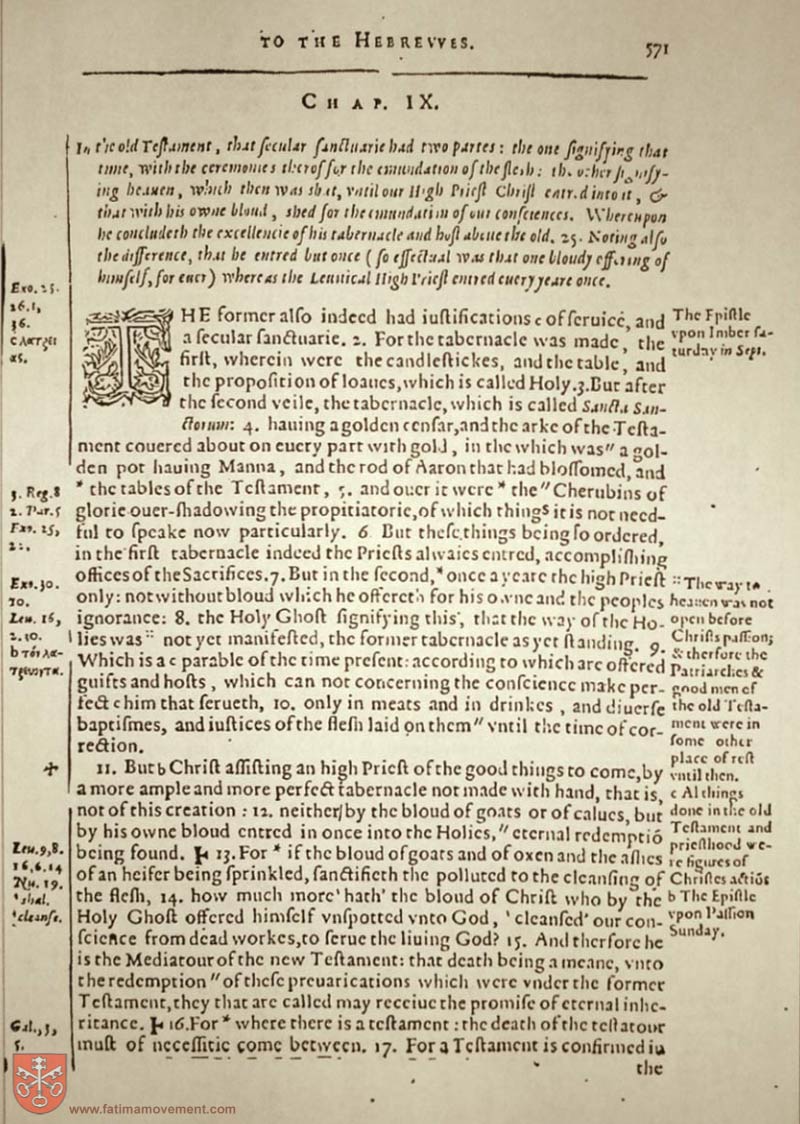 TO THE HEBREVVES.
571
CHAP. IX.
In the old Teſtament, that ſecular ſanctuarie had two partes: the one ſignifying that
time, with the ceremonies therof for the emundation of the fleſh: the other ſignify-
ing heauen, which then was ſhut, vntil our High Prieſt Chriſt entred into it, &
that with his owne bloud, ſhed for the emundation of our conſciences. Whereupon
he concludeth the excellencie of his tabernacle and hoſt aboue the old. 25. Noting alſo
the difference, that he entred but once (ſo effectual was that one bloudy offering of
himſelf, for euer) whereas the Leuitical High Prieſt entred euery yeare once.
THE former alſo indeed had iuſtifications c of ſeruice, and
a ſecular ſanctuarie. 2. For the tabernacle was made, the
firſt, wherein were the candleſtickes, and the table, and
the propoſition of loaues, which is called Holy. 3. But after
the ſecond veile, the tabernacle, which is called Sancta San-
ctorum: 4. hauing a golden cenſar, and the arke of the Teſta-
ment couered about on euery part with gold, in the which was " a gol-
den pot hauing Manna, and the rod of Aaron that had bloſſomed, and
* the tables of the Teſtament, 5. and ouer it were * the " Cherubins of
glorie ouer-ſhadowing the propitiatorie, of which things it is not need-
ful to ſpeake now particularly. 6 But theſe things being ſo ordered,
in the firſt tabernacle indeed the Prieſts alwaies entred, accompliſhing
offices of the Sacrifices. 7. But in the ſecond, * once a yeare the high Prieſt
only: not without bloud which he offereth for his owne and the peoples
ignorance: 8. the Holy Ghoſt ſignifying this, that the way of the Ho-
lies was :: not yet manifeſted, the former tabernacle as yet ſtanding. 9.
Which is a c parable of the time preſent: according to which are offered
guifts and hoſts, which can not concerning the conſcience make per-
fect c him that ſerueth, 10. only in meats and in drinkes, and diuerſe
baptiſmes, and iuſtices of the fleſh laid on them " vntil the time of cor-
rection.
11. But b Chriſt aſſiſting an high Prieſt of the good things to come, by
a more ample and more perfect tabernacle not made with hand, that is,
not of this creation: 12. neither by the bloud of goats or of calues, but
by his owne bloud entred in once into the Holies, " eternal redemptiō
being found. 13. For * if the bloud of goats and of oxen and the aſhes
of an heifer being ſprinkled, ſanctifieth the polluted to the cleanſing of
the fleſh, 14. how much more ' hath' the bloud of Chriſt who by the
Holy Ghoſt offered himſelf vnſpotted vnto God, ' cleanſed' our con-
ſcience from dead workes, to ſerue the liuing God? 15. And therfore he
is the Mediatour of the new Teſtament: that death being a meane, vnto
the redemption " of theſe preuarications which were vnder the former
Teſtament, they that are called may receiue the promiſe of eternal inhe-
ritance. 16. For * where there is a teſtament: the death of the teſtatour
muſt of neceſſitie come between. 17. For a Teſtament is confirmed in
the
Exo. 25.
26. 1,
36.
c λατρεί
ας.
3. Reg. 8
2. Par. 5
Exo. 25,
22.
Exo. 30.
10.
Leu. 16,
2. 10.
b τὸν λα-
τρεύοντα.
Leu. 9, 8.
16, 6. 14
Nu. 19.
'shal.
'cleanſe.
Gal., 3,
5.
The Epiſtle
vpon Imber ſa-
turday in Sept.
:: The way to
heauen was not
open before
Chriſts paſſion;
& therfore the
Patriarches &
good men of
the old Teſta-
ment were in
ſome other
place of reſt
vntil then.
c Al things
done in the old
Teſtament and
prieſthood we-
re figures of
Chriſtes actiōs
b The Epiſtle
vpon Paſſion
Sunday.
www.fatimamovement.com